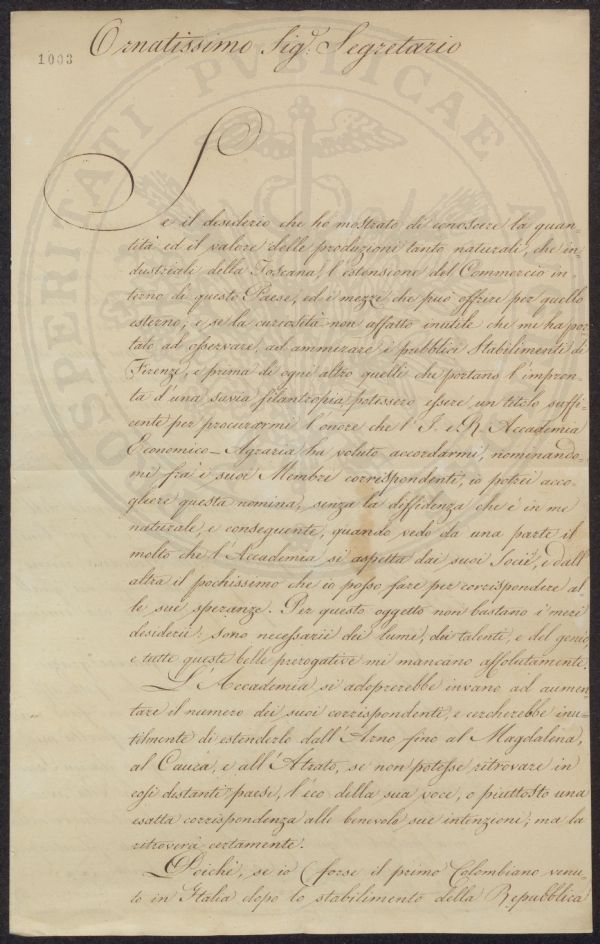 1003
Ornatissimo Sig.r Segretario
Se il desiderio che ho mostrato di conoscere la quan-
tità ed il valore delle produzioni tanto naturali, che in-
dustriali della Toscana, l'estensione del Commercio in-
terno di questo Paese, ed i mezzi che può offrire per quello
esterno; e se la curiosità non affatto inutile che mi ha por-
tato ad osservare, ad ammirare i pubblici Stabilimenti di
Firenze, e prima di ogni altro quelli che portano l'impron-
ta d'una savia filantropia potessero essere un titolo suffi-
cente per procurarmi l'onore che l'I. e R. Accademia
Economico-Agraria ha voluto accordarmi, nominando-
mi frà i suoi Membri corrispondenti, io potrei acco-
gliere questa nomina, senza la diffidenza che è in me
naturale, e conseguente, quando vedo da una parte il
molto che l'Accademia si aspetta dai suoi Socii, e dall'
altra il pochissimo che io posso fare per corrispondere al-
le sue speranze. Per questo oggetto non bastano i meri
desiderii: sono necessarii dei lumi, dei talenti, e del genio,
e tutte queste belle prerogative mi mancano assolutamente.
L'Accademia si adoprerebbe invano ad aumen-
tare il numero dei suoi corrispondenti, e cercherebbe inu-
tilmente di estenderlo dall'Arno fino al Magdalena,
al Cauca, e all'Atrato, se non potesse ritrovare in
così distanti paesi, l'eco della sua voce, o piuttosto una
esatta corrispondenza alle benevole sue intenzioni; ma la
ritroverà certamente.
Poichè, se io (forse il primo Colombiano venu-
to in Italia dopo lo stabilimento della Repubblica
PROSPERITATI PVBLICAE